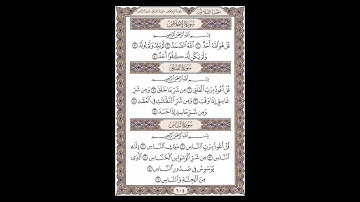 الجزء الثلاثون
سُورَةُ الإِخْلَاصِ
بِسْمِ اللَّهِ الرَّحْمَٰنِ الرَّحِيمِ
قُلْ هُوَ اللَّهُ أَحَدٌ ١ اللَّهُ الصَّمَدُ ٢ لَمْ يَلِدْ وَلَمْ يُولَدْ ٣
وَلَمْ يَكُن لَّهُ كُفُوًا أَحَدٌ ٤
سُورَةُ الفَلَقِ
بِسْمِ اللَّهِ الرَّحْمَٰنِ الرَّحِيمِ
قُلْ أَعُوذُ بِرَبِّ الْفَلَقِ ١ مِن شَرِّ مَا خَلَقَ ٢ وَمِن شَرِّ
غَاسِقٍ إِذَا وَقَبَ ٣ وَمِن شَرِّ النَّفَّٰثَٰتِ فِي الْعُقَدِ ٤
وَمِن شَرِّ حَاسِدٍ إِذَا حَسَدَ ٥
سُورَةُ النَّاسِ
بِسْمِ اللَّهِ الرَّحْمَٰنِ الرَّحِيمِ
قُلْ أَعُوذُ بِرَبِّ النَّاسِ ١ مَلِكِ النَّاسِ ٢ إِلَٰهِ
النَّاسِ ٣ مِن شَرِّ الْوَسْوَاسِ الْخَنَّاسِ ٤ الَّذِي
يُوَسْوِسُ فِي صُدُورِ النَّاسِ ٥
مِنَ الْجِنَّةِ وَالنَّاسِ ٦
٦٠٤